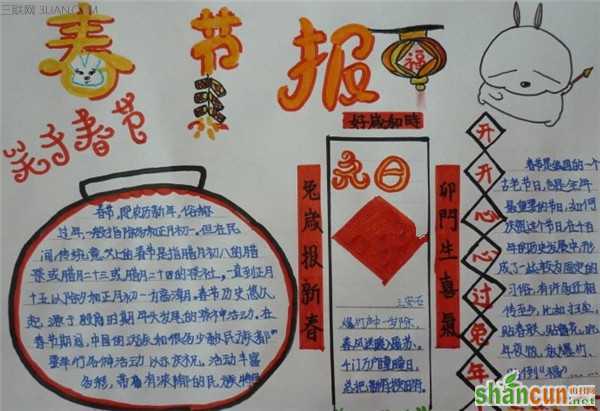 三联网 3LIAN.COM
春节报
福
关于春节
春节,是农历新年,俗称
过年,一般指除夕和正月初一。但在民
间,传统意义上的春节是指腊月初八的腊
祭或腊月二十三或腊月二十四的祭社,一直到正月
十五,以除夕和正月初一为高潮。春节历史悠久
起源于殷商时期年头岁尾的
在
春节期间,中国的汉族和很多少数民族都
要举行各种活动以示庆祝。活动丰富
多彩,带有浓郁的民族特
好歲和時
兔歲报新春
卯門生喜氣
元日
王安石
爆竹声中一岁除,
春风送暖入屠苏。
千门万户曈曈日,
总把新桃换旧符。
开开心心过兔年
春节是我国的一个
古老节日,也是全年
最重要的节日,如何
庆祝这个节日,在千百
年的历史发展中,形
成了一些较为固定的
习俗,有许多还相
传至今,比如扫尘,
贴春联,贴窗花,
年夜饭,放爆竹,
倒"福"
shancun
.net